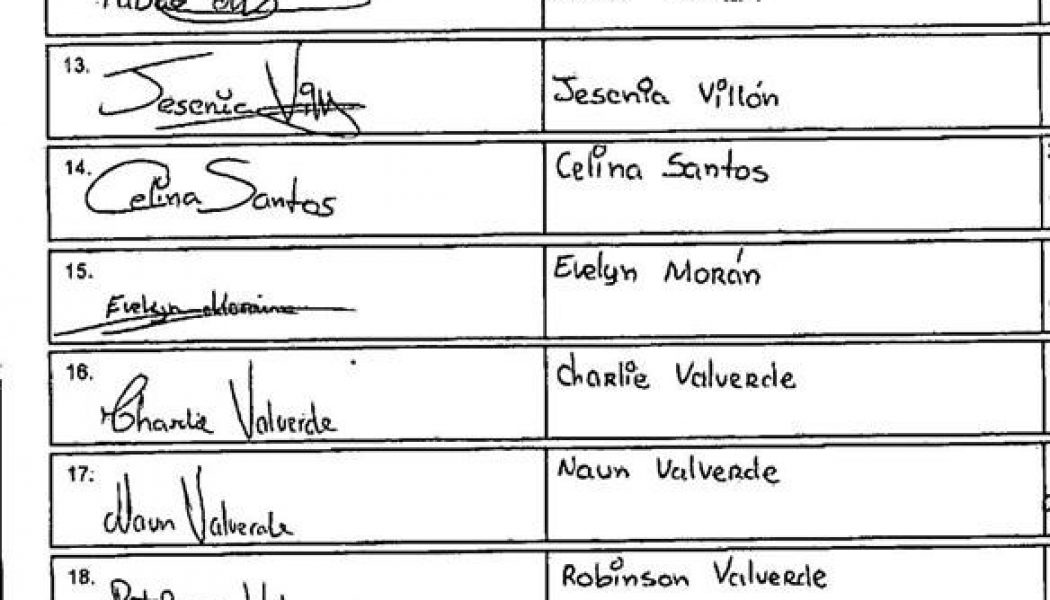 13. Jesenia Vill Jesenia Villón
14. Celina Santos Celina Santos
15. Evelyn Evelyn Morán
16. Charlie Valverde Charlie Valverde
17: Naun Valverde Naun Valverde
18. Robinson Valverde